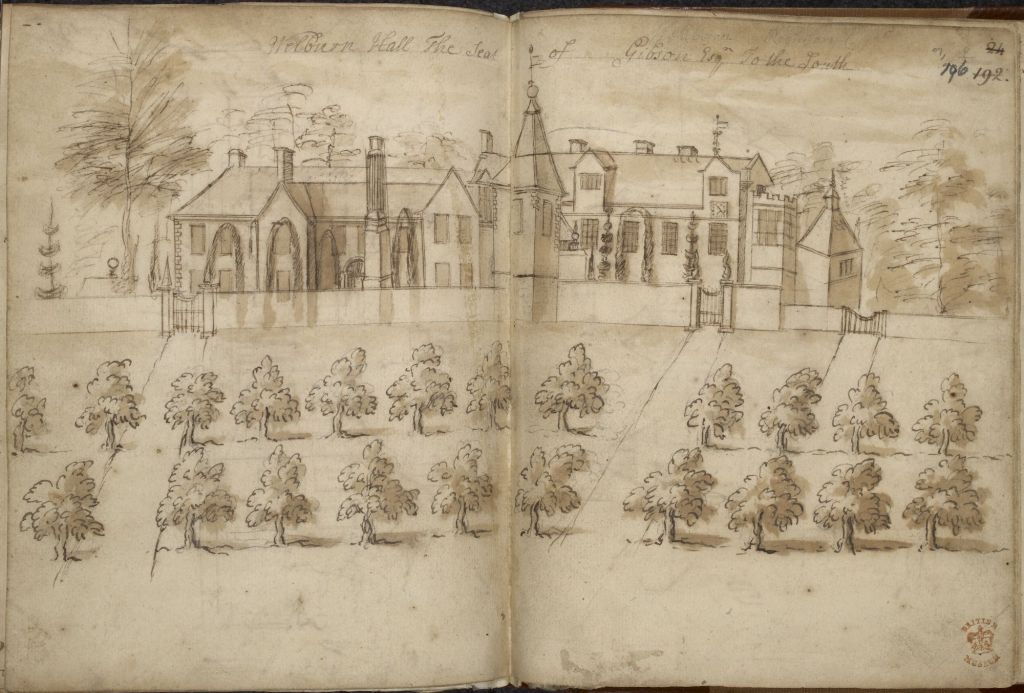 Welburn Hall The Seat of Gibson Esqr To the South
24
196 192.
BRITISH
MUSEUM